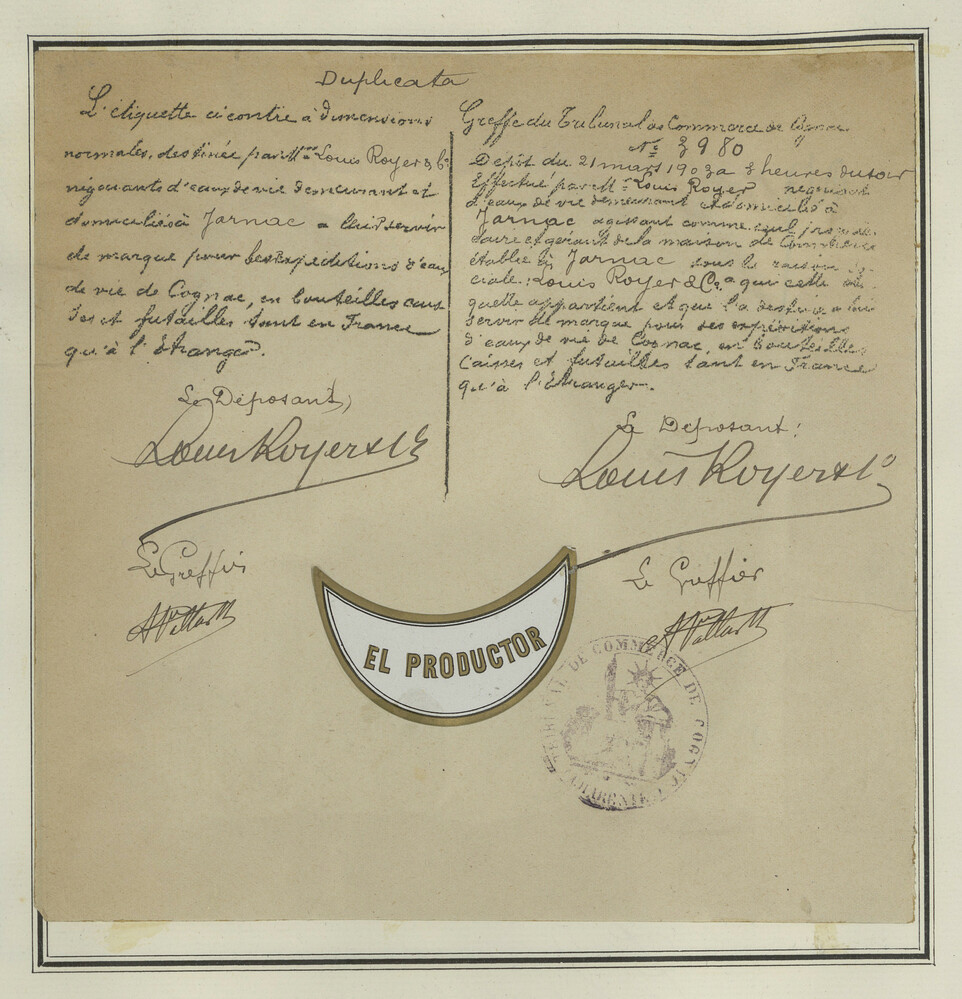 Duplicata
L'étiquette ci contre à dimensions
normales, destinée par MM. Louis Royer & Cie
négociants d'eaux de vie demeurant et
domiciliés à Jarnac a leur servir
de marque pour les expéditions d'eaux
de vie de Cognac, en bouteilles cais
ses et futailles tant en France
qu'à l'étranger.
Le Déposant,
Louis Royer & Cie
Le Greffier
Greffe du Tribunal de Commerce de Cognac
No 3980
Dépôt du 21 mars 1903 a 3 heures du soir
Effectué par M. Louis Royer négociant
d'eaux de vie demeurant et domicilié à
Jarnac agissant comme seul proprié
taire et gérant de la maison de Commerce
établie à Jarnac sous la raison so
ciale: Louis Royer & Cie a qui cette éti
quette appartient et que l'a destinée a lui
servir de marque pour ses expéditions
d'eaux de vie de Cognac, en bouteilles
caisses et futailles tant en France
qu'à l'étranger.
Le Déposant:
Louis Royer & Cie
Le Greffier
EL PRODUCTOR
TRIBUNAL DE COMMERCE DE COGNAC
(CHARENTE)